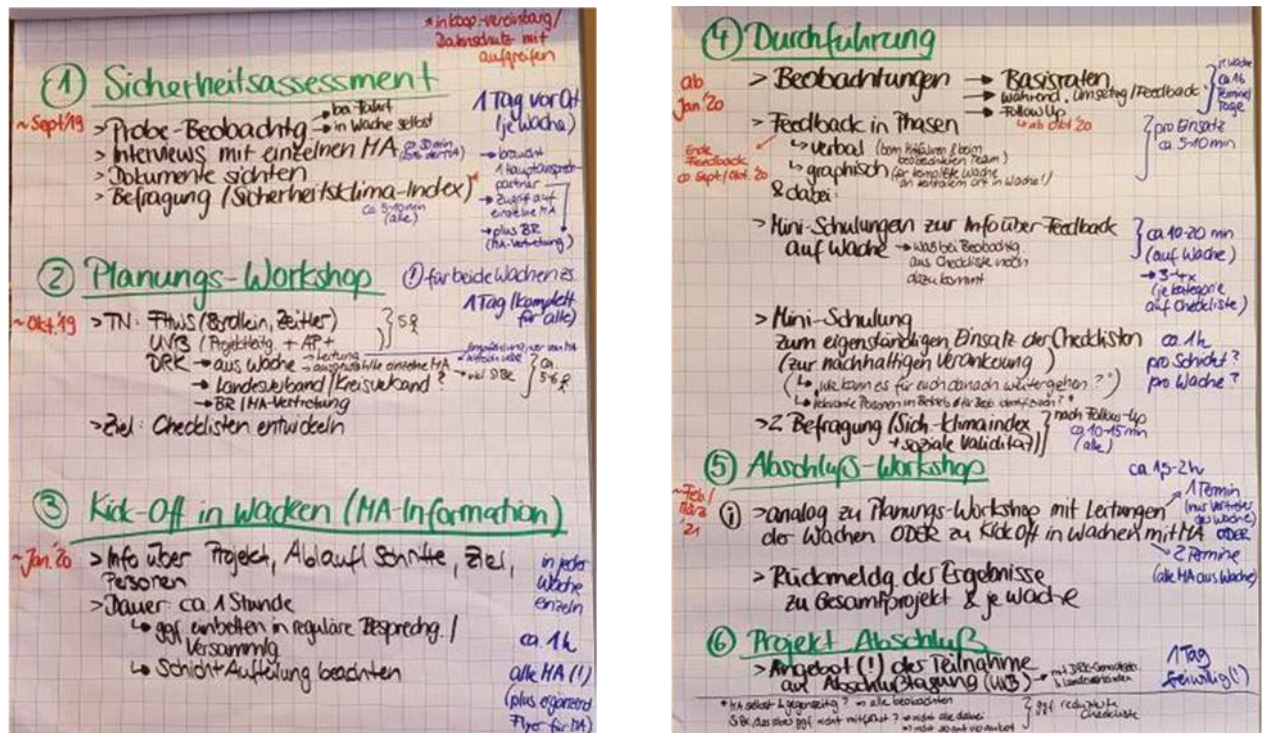 * in Koop.-vereinbarg/
Datenschutz mit
aufgreifen
① Sicherheitsassessment
~Sept '19
> Probe-Beobachtg → bei Fahrt
→ in Wache selbst
1 Tag vor Ort
(je Wache)
> Interviews mit einzelnen MA ca 30 min
> Dokumente sichten
> Befragung (Sicherheitsklima-Index)*
ca. 5-10 min
(alle)
→ braucht
1 Hauptansprech-
partner
→ Zugriff auf
einzelne MA
→ plus BR
(MA-Vertretung)
② Planungs-Workshop
(!) für beide Wachen zs.
1 Tag (komplett
für alle)
~Okt. '19
> TN: FHWS (Bördlein, Zeitler)
UVB (Projektleitg. + AP+
} 5
DRK → aus Wache → Leitung
→ ausgewählte einzelne MA
→ inkl SiBe
} ca.
5-6
→ Landesverband/Kreisverband?
→ BR/MA-Vertretung
> Ziel: Checklisten entwickeln
③ Kick-Off in Wachen (MA-Information)
~Jan. '20
> Info über Projekt, Ablauf/Schritte, Ziel,
Personen
in jeder
Wache
einzeln
> Dauer ca. 1 Stunde
↳ ggf. einbetten in reguläre Besprechg. /
Versammlg
↳ Schicht-Aufteilung beachten
ca. 1h
alle MA (!)
(plus ergänzend
Flyer für MA)
④ Durchführung
ab
Jan. '20
> Beobachtungen → Basisraten
→ während Umsetzg/Feedback
→ Follow Up
↳ ab Okt '20
} je Wache
ca 16
Termine/
Tage
> Feedback in Phasen
↳ verbal (beim Mitfahren & beim
beobachteten Team)
↳ graphisch (für komplette Wache
an zentralem Ort in Wache!)
} pro Einsatz
ca. 5-10 min
Ende
Feedback
ca Sept./Okt. '20
& dabei:
> Mini-Schulungen zur Info über Feedback
auf Wache → was bei Beobachtg.
aus Checkliste noch
dazu kommt
} ca 10-20 min
(auf Wache)
→ 3-4x
(je Kategorie
auf Checkliste)
> Mini-Schulung
zum eigenständigen Einsatz der Checklisten
(zur nachhaltigen Verankerung)
(↳ „Wie kann es für euch danach weitergehen?")
ca. 1h
pro Schicht?
pro Wache?
> 2. Befragung (Sich.-klimaindex
+ soziale Validität)
} nach Follow-Up
ca 10-15 min
(alle)
⑤ Abschluß-Workshop
ca 1,5-2h
~Feb./
März
'21
(i) > analog zu Planungs-Workshop mit Leitungen
der Wachen ODER zu Kick Off in Wachen mit MA
1 Termin
(nur Vertreter
der Wache)
ODER
2 Termine
(alle MA aus Wache)
> Rückmeldg der Ergebnisse
zu Gesamtprojekt & je Wache
⑥ Projekt Abschluß
> Angebot (!) der Teilnahme
an Abschlußtagung (UVB)
1 Tag
freiwillig (!)
* MA selbst & gegenseitig? → alle beobachten
} ggf. reduzierte
Checkliste